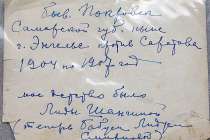 быв. Покровск
Самарской губ. ныне
г. Энгельс против Саратова
1904 по 1907 год
мое детство было
Лиды Шаниной
(теперь бабуси Лидии